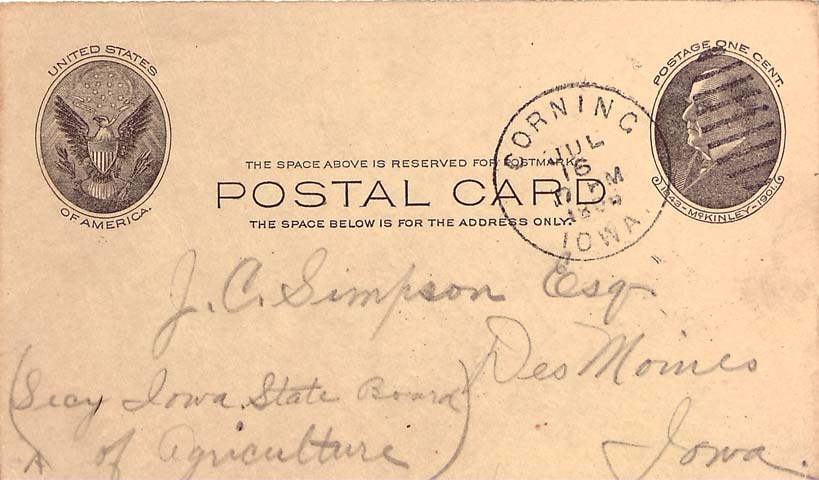 UNITED STATES
OF AMERICA.
POSTAGE ONE CENT.
1843-McKINLEY-1901.
CORNING
JUL
16
AM
IOWA.
THE SPACE ABOVE IS RESERVED FOR POSTMARK.
POSTAL CARD
THE SPACE BELOW IS FOR THE ADDRESS ONLY.
J. C. Simpson Esq.
Des Moines
Iowa.
(Secy Iowa State Board
of Agriculture)